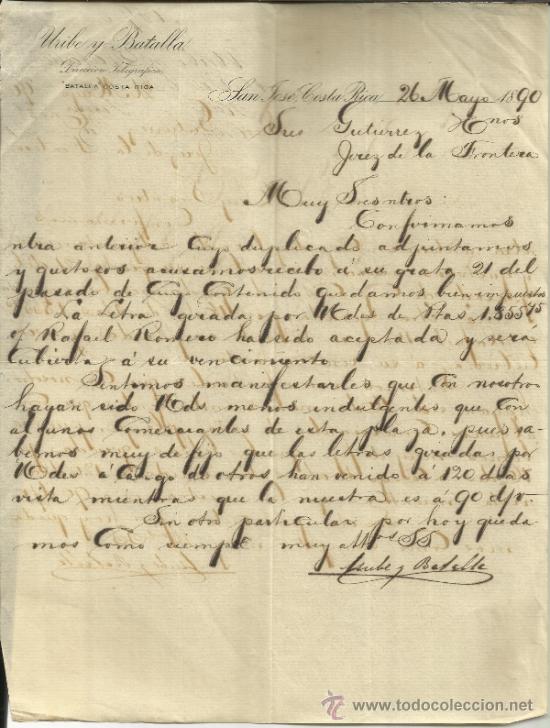 Uribe y Batalla
Dirección Telegráfica
BATALLA COSTA RICA
San José, Costa Rica 26 Mayo 1890
Sres Gutierrez Hnos
Jerez de la Frontera
Muy Sres ntros:
Confirmamos
ntra anterior cuyo duplicado adjuntamos
y gustosos acusamos recibo á su grata 21 del
pasado de cuyo contenido quedamos bien impuestos
La Letra girada por Uds de Ptas 1.355 75
c/ Rafael Romero ha sido aceptada y será
cubierta á su vencimiento.
Sentimos manifestarles que con nosotros
hayan sido Uds menos indulgentes que con
algunos comerciantes de esta plaza, pues sa-
bemos muy de fijo que las letras giradas por
Uds á cargo de otros han venido á 120 dias
vista mientras que la nuestra es á 90 d/v.
Sin otro particular por hoy queda
mos como siempre muy attos SS
Uribe y Batalla
www.todocoleccion.net